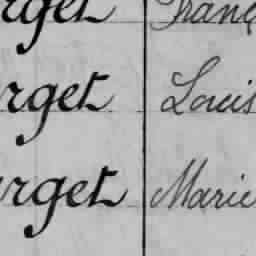 rget Franç
rget Louis
rget Marie